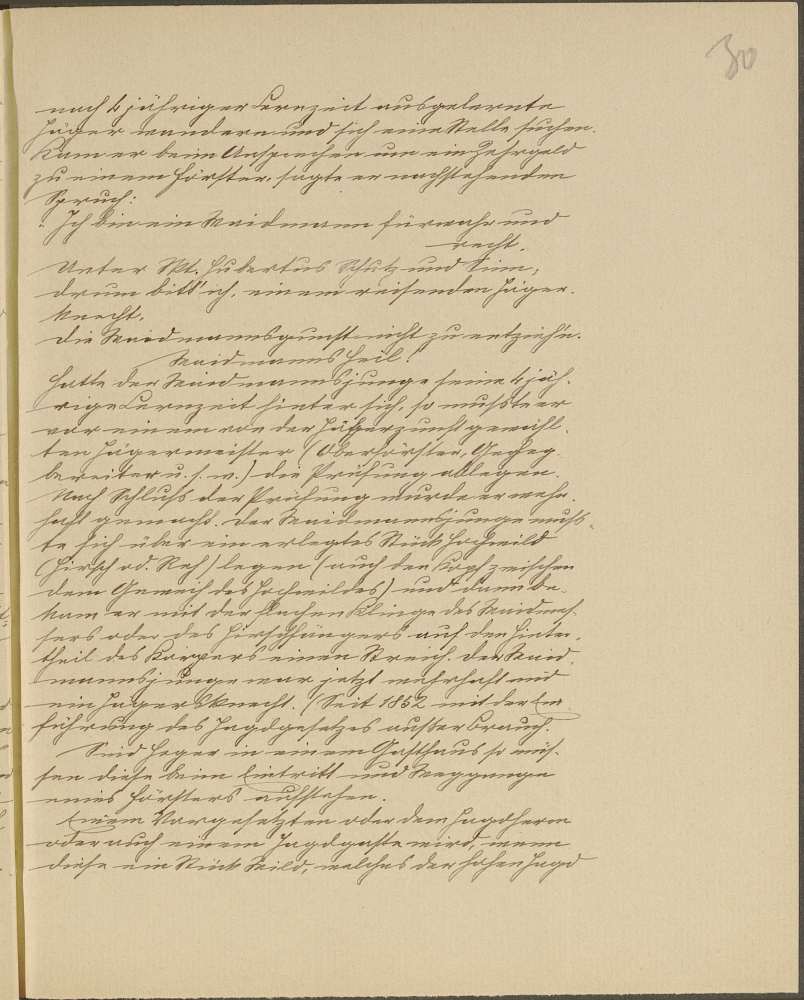 30
nach 4 jähriger Lernzeit ausgelernte
Jäger wandern und sich eine Stelle suchen.
Kam er beim Ansprechen um ein Zehrgeld
zu einem Förster, sagte er nachstehenden
Spruch:
"Ich bin ein Waidmann fürwahr und
recht,
Unter Skt. Hubertus Schutz und Sinn,
drum bitt' ich, einem reisenden Jäger-
knecht,
die Waidmannsgunst nicht zu entzieh'n.
Waidmanns Heil!"
Hatte der Waidmannsjunge seine 4 jäh-
rige Lernzeit hinter sich, so mußte er
vor einem von der Jägerzunft gewähl-
ten Jägermeister (Oberförster, Geheg-
bereiter u. s. w.) die Prüfung ablegen.
Nach Schluß der Prüfung wurde er wehr-
haft gemacht. Der Waidmannsjunge muß-
te sich über ein erlegtes Stück Hochwild
(Hirsch od. Reh) legen (auch den Kopf zwischen
dem Geweih des Hochwildes) und dann be-
kam er mit der flachen Klinge des Waidmes-
sers oder des Hirschfängers auf den Hinter-
theil des Körpers einen Streich. Der Waid-
mannsjunge war jetzt wehrhaft und
ein Jagerknecht. (Seit 1852 mit der Ein-
führung des Jagdgesetzes außer Brauch.
Sind Heger in einem Gasthaus so müs-
sen diese beim Eintritt und Weggange
eines Försters aufstehen.
Einem Vorgesetzten oder dem Jagdherrn
oder auch einem Jagdgaste wird, wenn
diese ein Stück Wild, welches der hohen Jagd